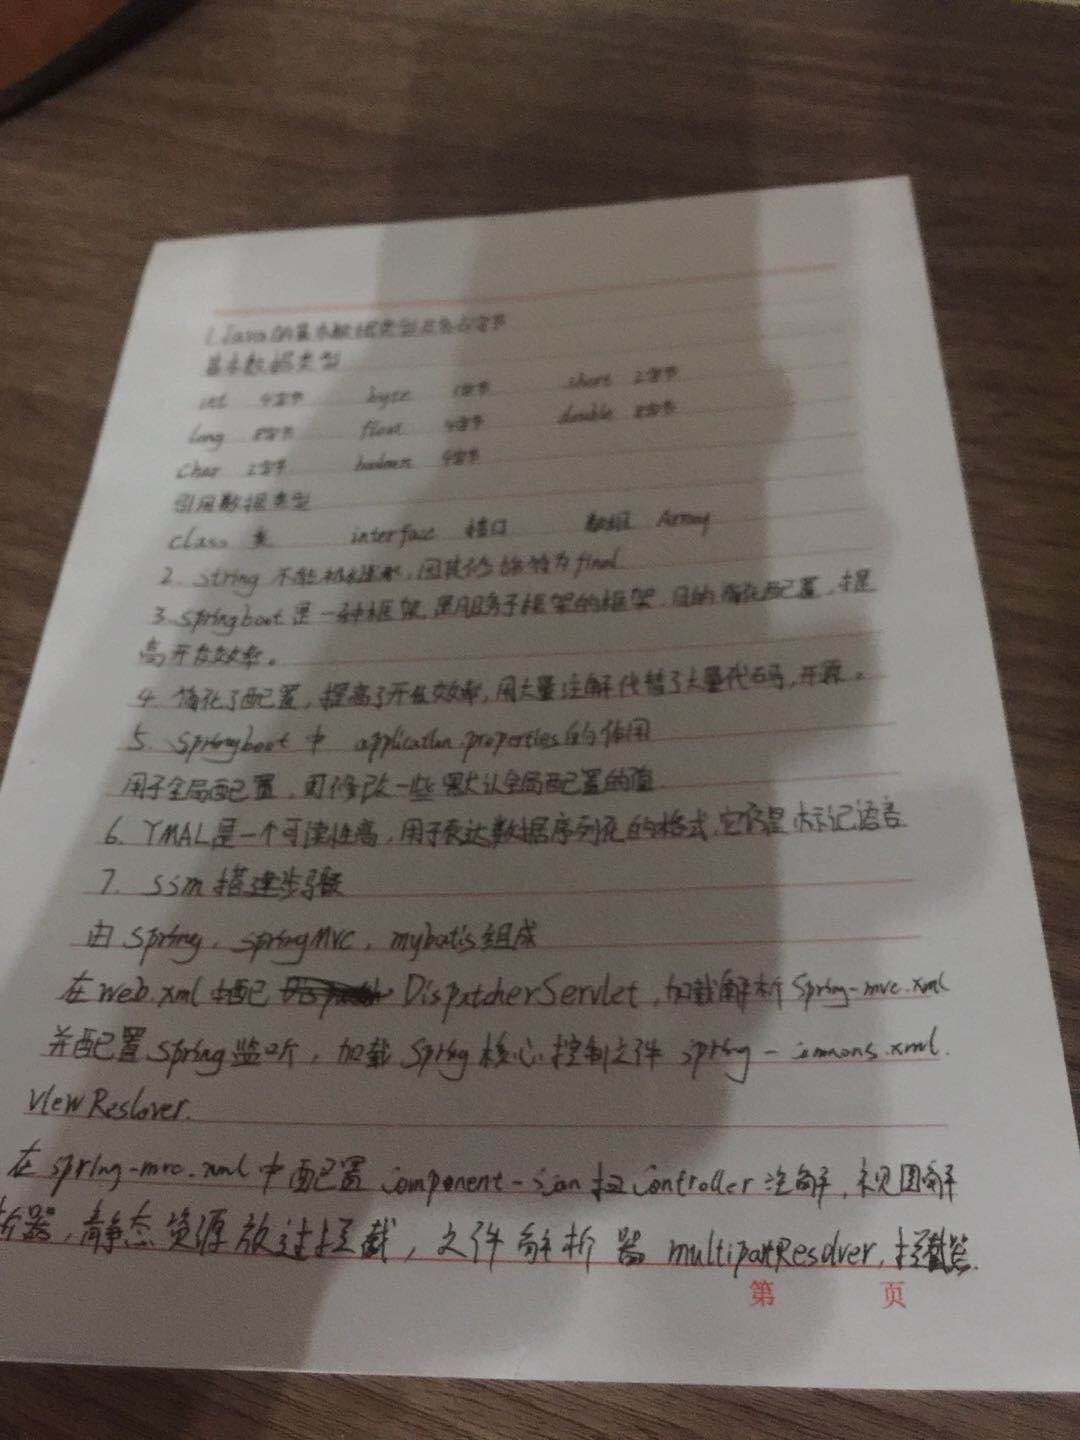 1. Java的基本数据类型及各占字节
基本数据类型
int 4字节 byte 1字节 short 2字节
long 8字节 float 4字节 double 8字节
char 2字节 boolean 4字节
引用数据类型
class 类 interface 接口 数组 Array
2. String 不能被继承,因其修饰符为final
3. Springboot是一种框架,是服务于框架的框架,目的简化配置,提
高开发效率。
4. 简化了配置,提高了开发效率,用大量注解代替了大量代码,开源。
5. Springboot 中 application.properties的作用
用于全局配置,可修改一些默认全局配置的值
6. YMAL是一个可读性高,用于表达数据序列化的格式,它仍是标记语言
7. ssm搭建步骤
由 Spring, springMVC, mybatis组成
在web.xml中配 DispatcherServlet,加载解析Spring-mvc.xml
并配置Spring监听,加载 Spring核心控制文件 spring-
ViewReslover.
在spring-mvc.xml中配置component-scan扫controller注解,视图解
析器,静态资源放过拦截,文件解析器multipartResolver,拦截器.
第 页